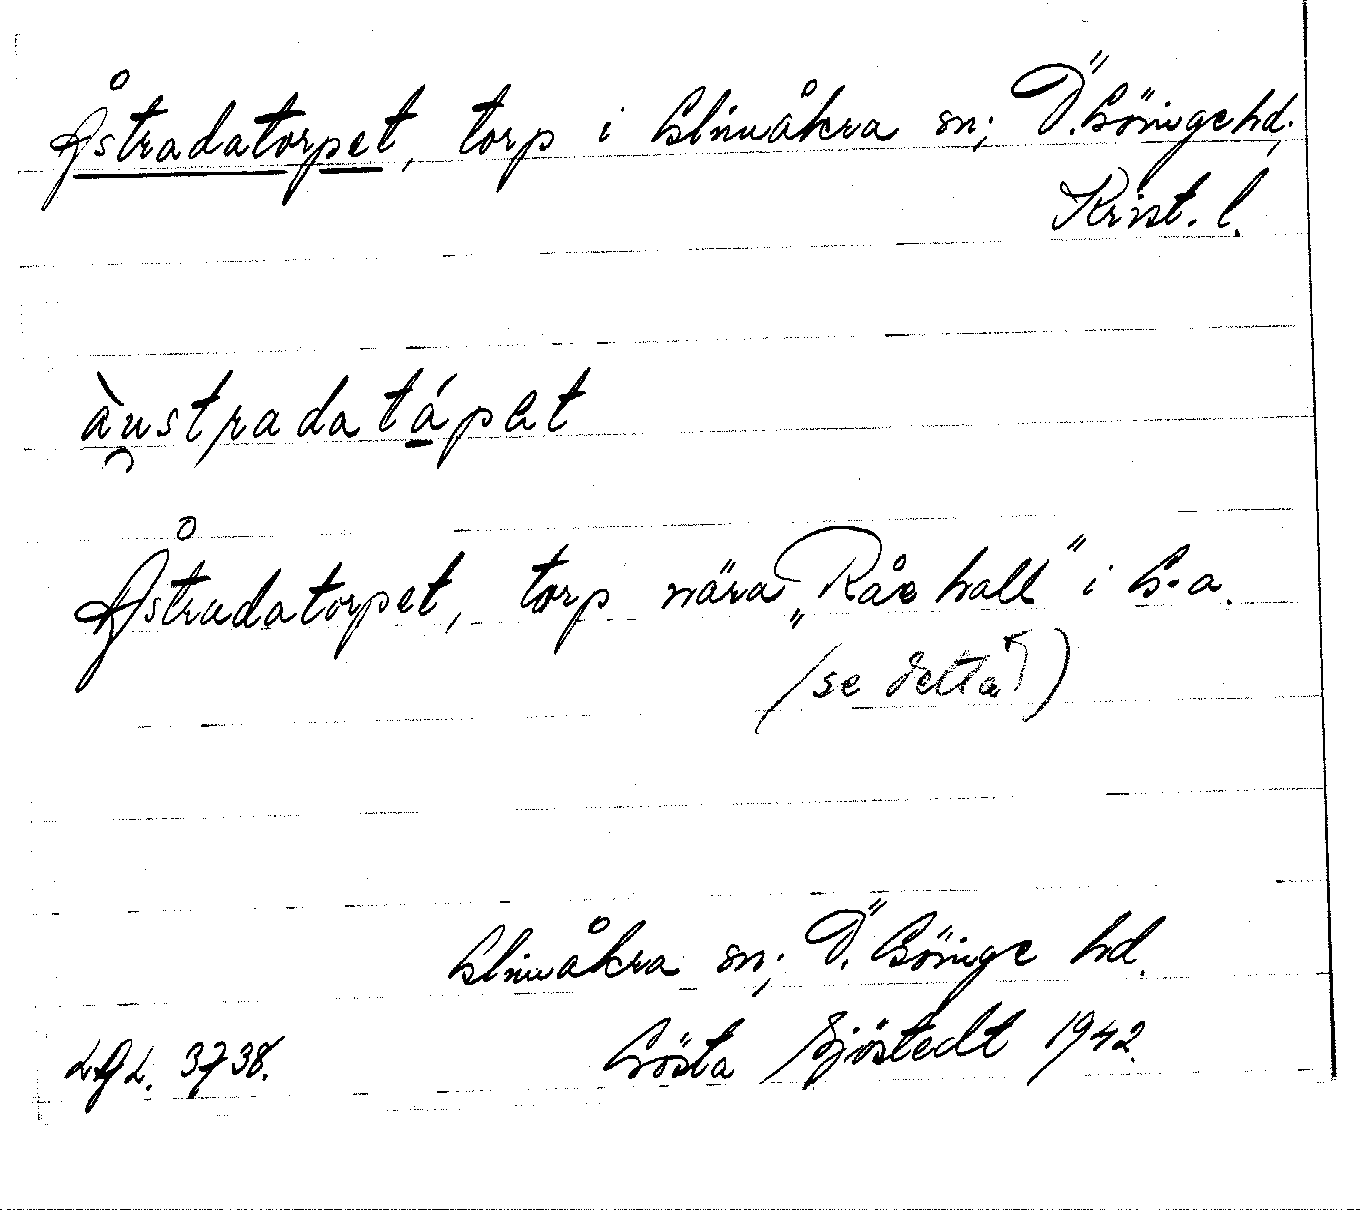 Åstradatorpet, torp i Glimåkra sn; Ö. Göinge hd.
Krist. l.
àu̯stradatápat
Åstradatorpet, torp nära „Råe hall" i G-a.
(se detta)
Glimåkra sn; Ö. Göinge hd.
LAL. 3738. Gösta Sjöstedt 1942.